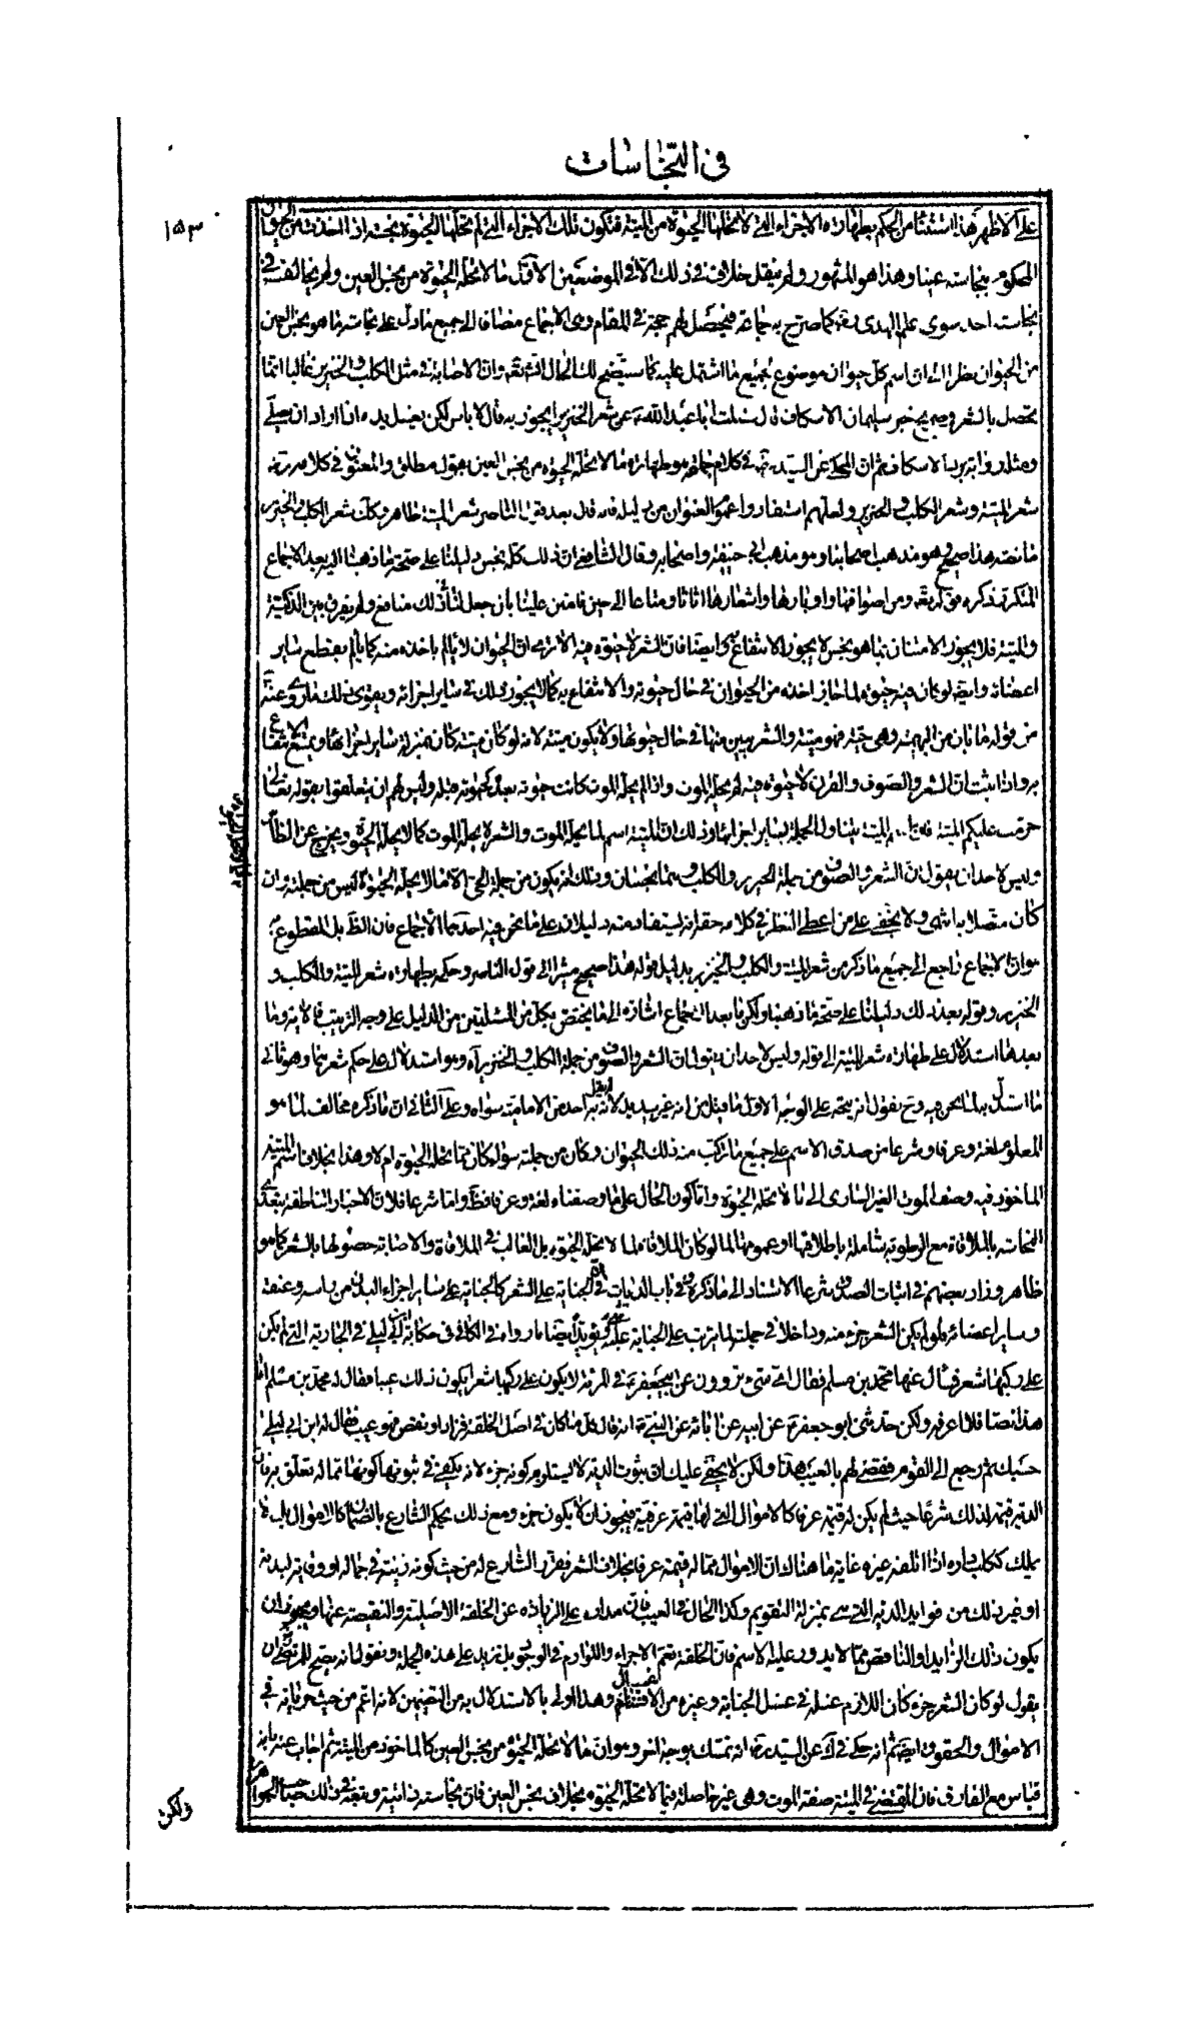 في النّجاسات
١٥٣
على الاظهر هذا استثناء من الحكم بطهارة الاجزاء التي لا تحلّها الحيوة من الميتة فتكون تلك الاجزاء التي لم تحلّها الحيوة نجسة اذا اتخذت من الحيوان
المحكوم بنجاسته عينا وهذا هو المشهور ولم ينقل خلاف في ذلك الا في الموضعين الاوّل ما لا تحلّه الحيوة من نجس العين ولم يخالف في
نجاسته احد سوى علم الهدى كما صرّح به جماعة فيحصل لهم حجة في المقام وهي الاجماع مضافا الى جميع ما دلّ على نجاسة ما هو نجس العين
من الحيوان نظرا الى ان اسم كلّ حيوان موضوع لجميع ما اشتمل عليه كما ستتضح لك الحال وان الاصابة في مثل الكلب والخنزير غالبا انما
تحصل بالشعر وصريح خبر سليمان الاسكاف قال سئلت ابا عبد الله عن شعر الخنزير ايجوز به قال لا باس لكن يغسل يده اذا اراد ان يصلّي
ومثله رواية برد الاسكاف ثم ان المحكي عن السيد في كلام جماعة هو طهارة ما لا تحلّه الحيوة من نجس العين بقول مطلق والمعنون في كلامه
شعر الميتة وشعر الكلب والخنزير ولعلهم استفادوا عموم العنوان من دليله فانه قال بعد قول الناصر شعر الميتة طاهر وكذا شعر الكلب والخنزير
ما نصه هذا صحيح وهو مذهب اصحابنا وهو مذهب ابي حنيفة واصحابه وقال الشافعي ان ذلك كلّه نجس دليلنا على صحة ما ذهبنا اليه بعد الاجماع
المتكرر ذكره قوله تعالى ومن اصوافها واوبارها واشعارها اثاثا ومتاعا الى حين فامتن علينا بان جعل لنا في ذلك منافع ولم يفرق بين الذكية
والميتة فلا يجوز الامتنان بما هو نجس لا يجوز الانتفاع به وايضا فان الشعر لا حيوة فيه الا ترى ان الحيوان لا يألم باخذه منه كما يألم بقطع سائر
اعضائه وايضا لو كان فيه حيوة لما جاز اخذه من الحيوان في حال حيوته والانتفاع به كما لا يجوز ذلك في سائر اجزائه ويقوى ذلك ما روى عنه
من قوله ما بان من البهيمة وهي حيّة فهو ميتة والشعر يبين منها في حال حيوتها ولا يكون ميتة لانه لو كان ميتة كان بمنزلة سائر اجزائها ويمتنع الانتفاع
به واذا ثبت ان الشعر والصوف والقرن لا حيوة فيه لم يحلّه الموت واذا لم يحلّه الموت كانت حيوته بعد كحيوته قبله وليس لهم ان يتعلقوا بقوله تعالى
حرمت عليكم الميتة الميتة يتناول الجملة بسائر اجزائها وذلك ان الميتة اسم لما يحلّه الموت والشعر لا يحلّه الموت كما لا يحلّه الحيوة ويخرج عن الظاهر
وليس لاحد ان يقول ان الشعر والصوف من جملة الخنزير والكلب وهما نجسان وذلك انه يكون من جملة الحي الا ما لا تحلّه الحيوة ليس من جملته وان
كان متصلا به انتهى ولا يخفى على من اعطى النظر في كلامه حقه انه يستفاد منه دليلان على ما نحن فيه احدهما الاجماع فان الظ بل المقطوع به
هو ان الاجماع راجع الى جميع ما ذكر من شعر الميتة والكلب والخنزير بدليل قوله هذا صحيح مشيرا الى قول الناصر وحكمه بطهارة شعر الميتة والكلب و
الخنزير وقوله بعد ذلك دليلنا على صحة ما ذهبنا ولكن ما بعد الاجماع اشارة الى ما يختص بكل من المسئلتين من الدليل على وجه الترتيب فالاية وما
بعدها استدلال على طهارة شعر الميتة الى قوله وليس لاحد ان يقول ان الشعر والصوف من جملة الكلب والخنزير اه وهو استدلال على حكم شعرهما وهو ثاني
ما استدل به لما نحن فيه وح نقول انه يتجه على الوجه الاول ما قيل من انه غريب بل لم يقل به احد من الامامية سواه وعلى الثاني ان ما ذكره مخالف لما هو
المعلوم لغة وعرفا وشرعا من صدق الاسم على جميع ما تركب منه ذلك الحيوان وكان من جملته سواء كان مما تحلّه الحيوة ام لا وهذا بخلاف اسم الميتة
الماخوذ فيه وصف الموت الغير الساري الى ما لا تحلّه الحيوة واما كون الحال على ما وصفناه لغة وعرفا فظ واما شرعا فلان الاخبار الناطقة بتعدّي
النجاسة بالملاقاة مع الرطوبة شاملة باطلاقها او عمومها لما لو كان الملاقاة لما لا تحلّه الحيوة بل الغالب في الملاقاة والاصابة حصولها بالشعر كما هو
ظاهر وزاد بعضهم في اثبات الصدق شرعا الاستناد الى ما ذكروه في باب الديات في الجناية على الشعر كالجناية على سائر اجزاء البدن من راسه وعنقه
وساير اعضائه فلو لم يكن الشعر جزء منه وداخلا في جملته لما ترتب على الجناية عليه ويؤيده ايضا ما رواه في الكافي في حكاية ابن ابي ليلى في الجارية التي لم يكن
على ركبها شعر فسأل عنها محمد بن مسلم فقال اي شيء تروون عن ابي جعفر في المرئة لا يكون على ركبها شعر ايكون ذلك عيبا فقال له محمد بن مسلم اما
هذا نصا فلا اعرفه ولكن حدثني ابو جعفر عن ابيه عن ابائه عن النبي انه قال كل ما كان في اصل الخلقة فزاد او نقص فهو عيب فقال له ابن ابي ليلى
حسبك ثم رجع الى القوم فقضى لهم بالعيب هذا ولكن لا يخفى عليك ان ثبوت الدية لا يستلزم كونه جزء لانه يكفي في ثبوتها كونها مما له تعلق به فان
الدية قيمة لذلك شرعا حيث لم يكن له قيمة عرفا كالاموال التي لها قيمة عرفية فيجوز ان لا يكون جزء ومع ذلك يحكم الشارع بالضمان كالاموال بل ما
يملك ككلب داره اذا اتلفه غيره غاية ما هناك ان الاموال مما له قيمة عرفا بخلاف الشعر فقرر الشارع له من حيث كونه زينة في جماله او وقاية لبدنه
او غير ذلك من فوايد الدية التي هي بمنزلة التقويم وكذا الحال في العيب فان مداره على الزيادة عن الخلقة الاصلية والنقيصة عنها ويجوز ان
يكون ذلك الزايد او الناقص مما لا يدور عليه الاسم فان الخلقة تعم الاجزاء واللوازم في الوجود بل نزيد على هذه الجملة ونقول انه يصح للمرتضى ان
يقول لو كان الشعر جزء كان اللازم غسله في غسل الجنابة وغيره من الاغسال وهذا اولى بالاستدلال به من النقيض لانه اعم من حيث جريانه في
الاموال والحقوق ايضا ثم انه حكى في عن السيد انه تمسك بوجه اخر وهو ان ما لا تحلّه الحيوة من نجس العين كالماخوذ من الميتة ثم اجاب عنه بانه
قياس مع الفارق فان المقتضى في الميتة صفة الموت وهي غير حاصلة فيما لا تحلّه الحيوة بخلاف نجس العين فان نجاسته ذاتية وتبعه في ذلك صاحب الجواهر
ولكن